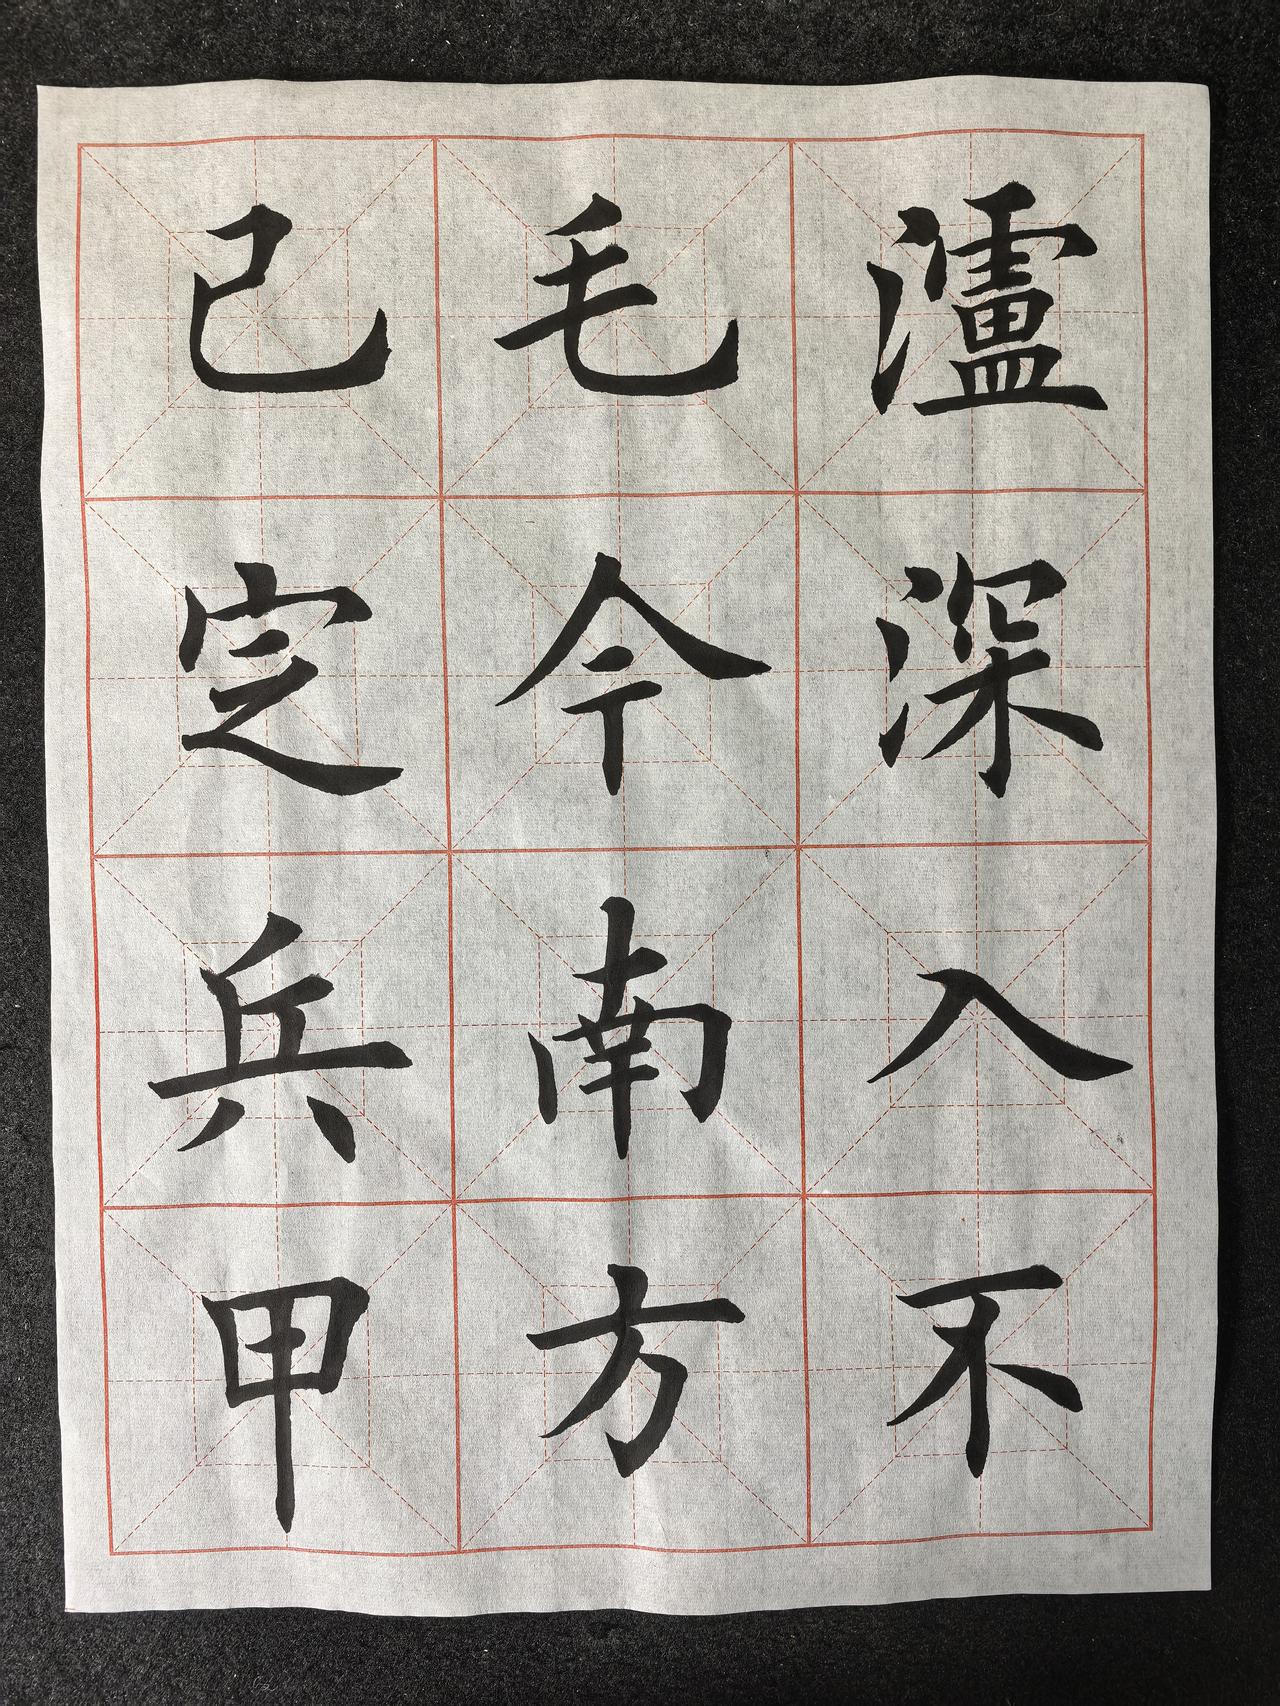 瀘深入不
毛今南方
已定兵甲